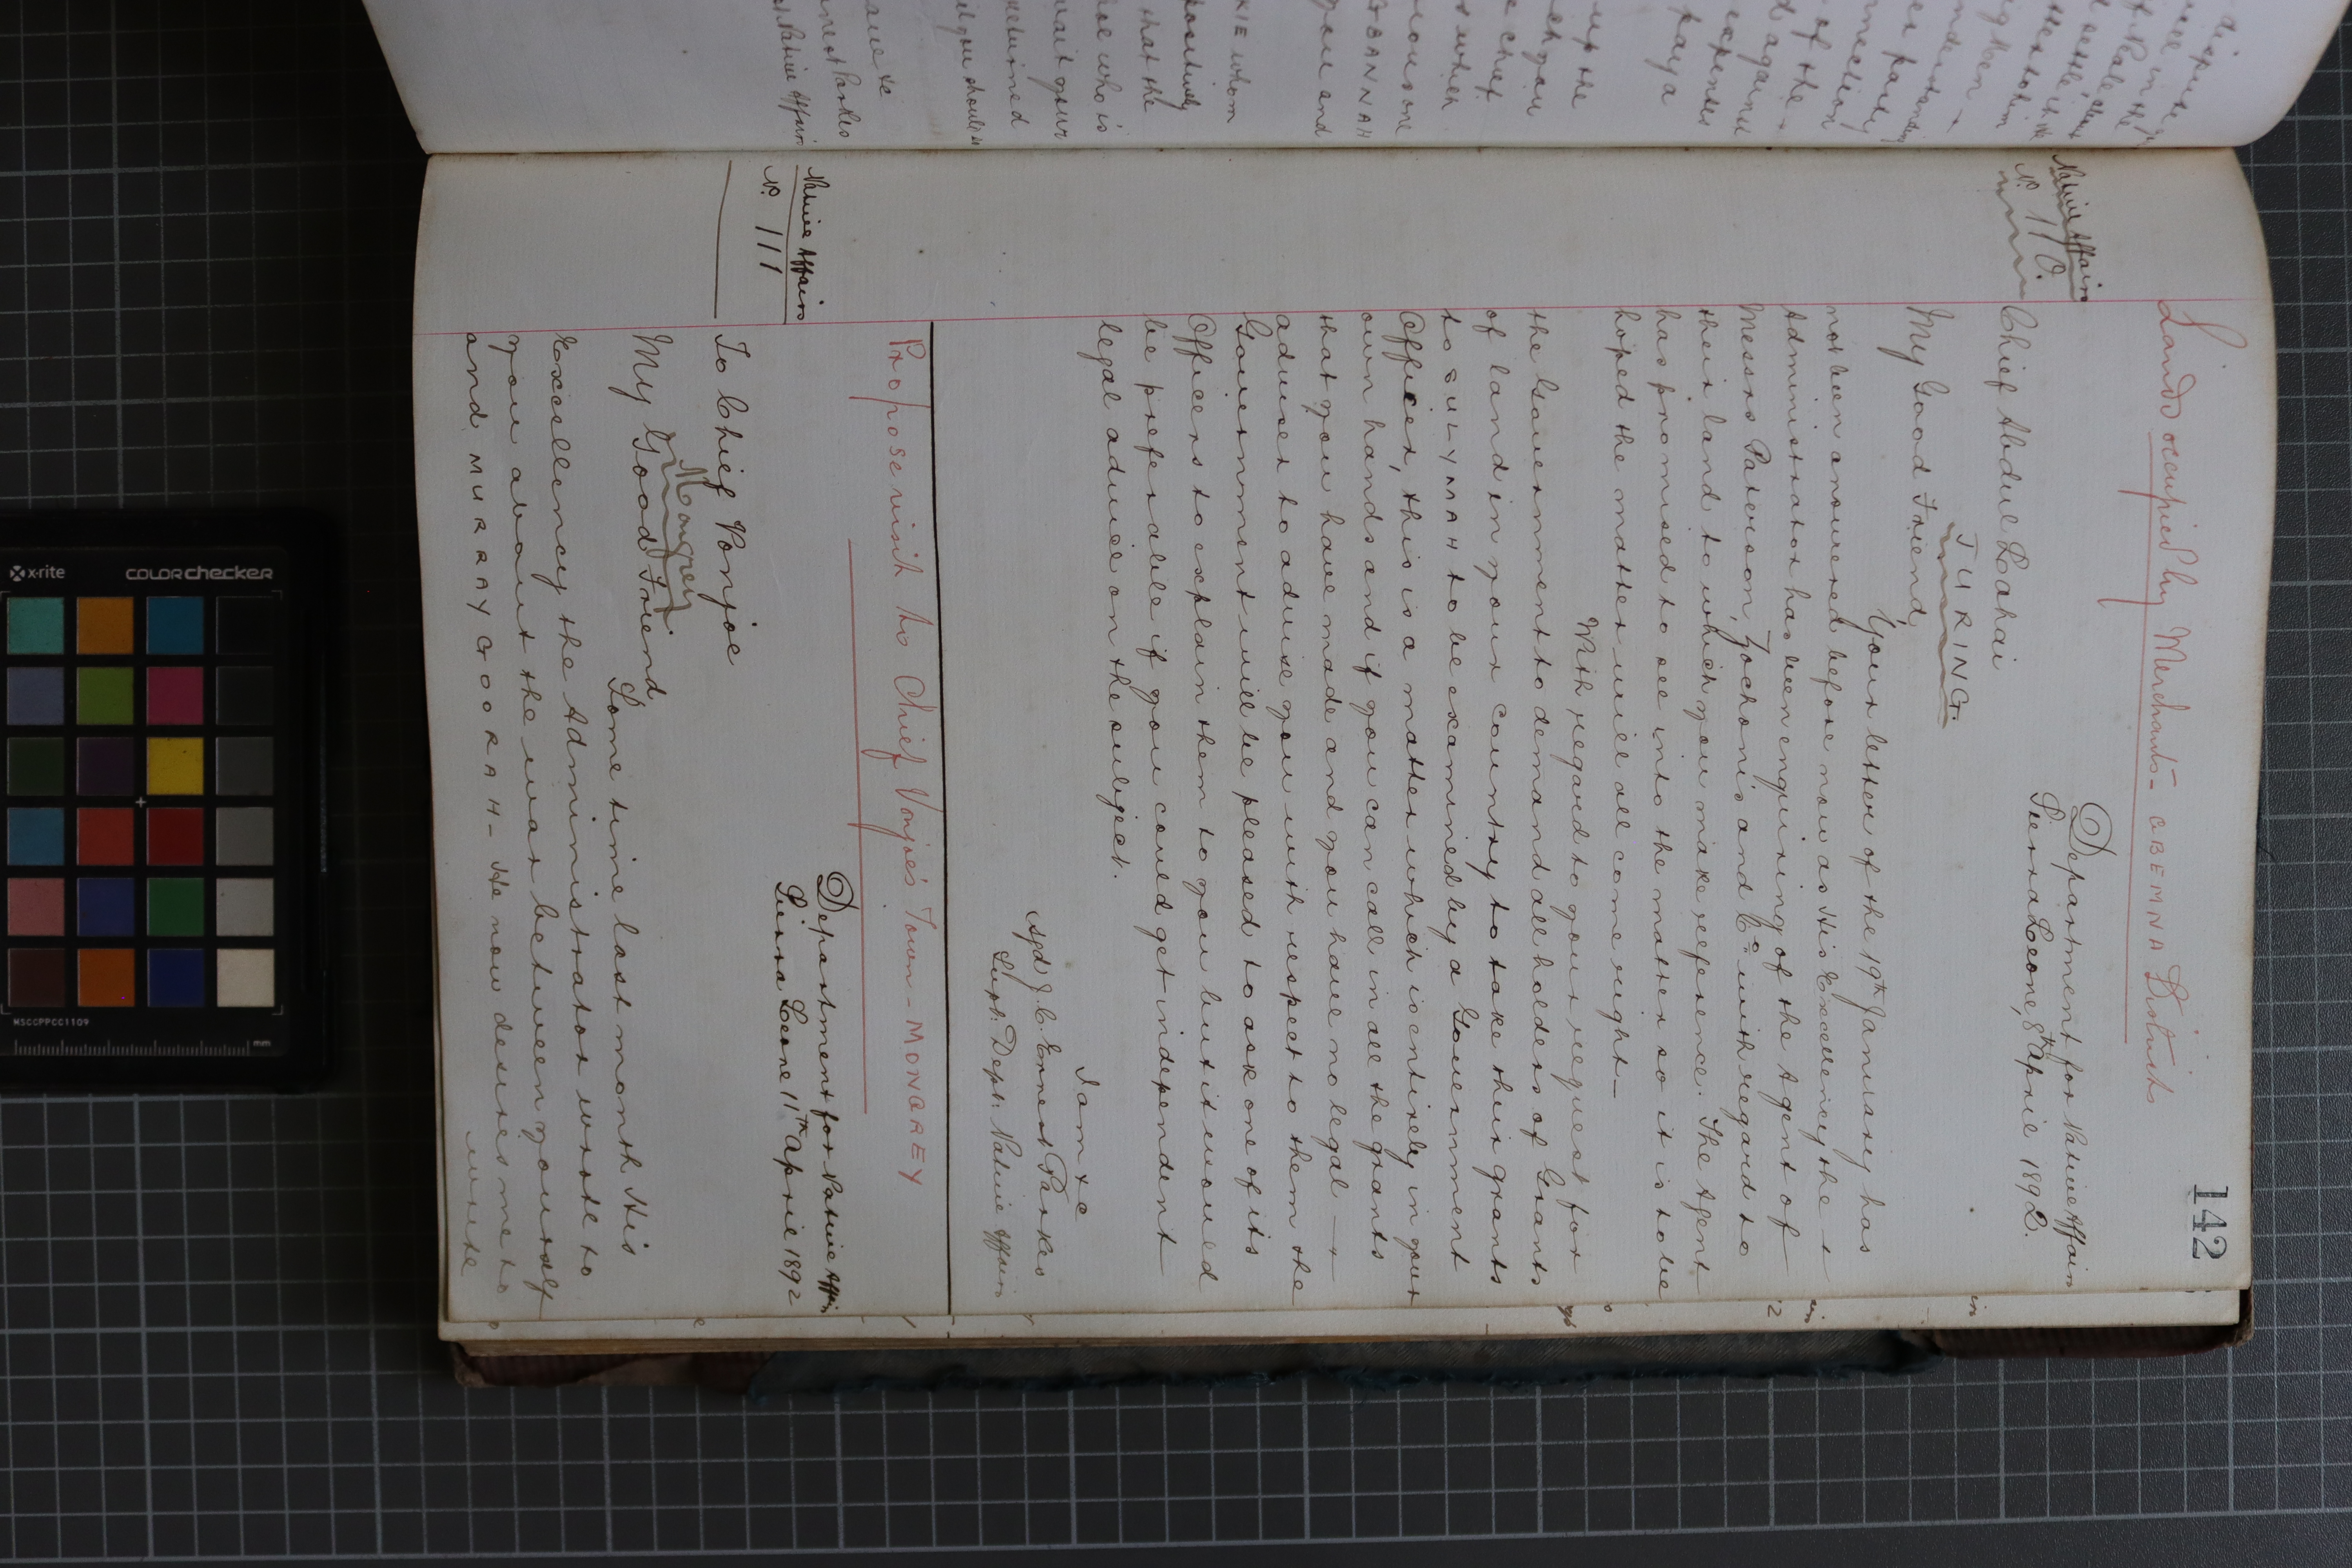 142
Lands occupied by Merchants - OBEMNA Districts
Native Affairs
No. 110.
Department for Native Affairs
Sierra Leone, 8th April 1892.
Chief Abdul Lahai
JURING
My Good Friend,
Your letter of the 19th January has
not been answered before now as His Excellency the
Administrator has been enquiring of the Agent of
Messrs Paterson, Zochonis and Co. with regard to
their land to which you make reference. The Agent
has promised to see into the matter so it is to be
hoped the matter will all come right_
With regard to your request for
the Government to demand all holders of Grants
of land in your country to take their grants
to SULYMAH to be examined by a Government
Officer, this is a matter which is entirely in your
own hands and if you can call in all the grants
that you have made and you have no legal
adviser to advise you with respect to them the
Government will be pleased to ask one of its
Officers to explain them to you but it would
be preferable if you could get independent
legal advice on the subject.
I am &c
sgd J. C. Ernest Parkes
Supt: Dept: Native Affairs
Propose visit to Chief Vonjoe's Town - MONGREY
Native Affairs
No. 111
Department for Native Affairs
Sierra Leone 11th April 1892
To Chief Vonjoe
Mongrey
My Good Friend
Some time last month His
Excellency the Administrator wrote to
you about the war between yourself
and MURRAY GOORAH - He now desires me to
write
COLORCHECKER
x-rite
MSCCPPCC1109
mm